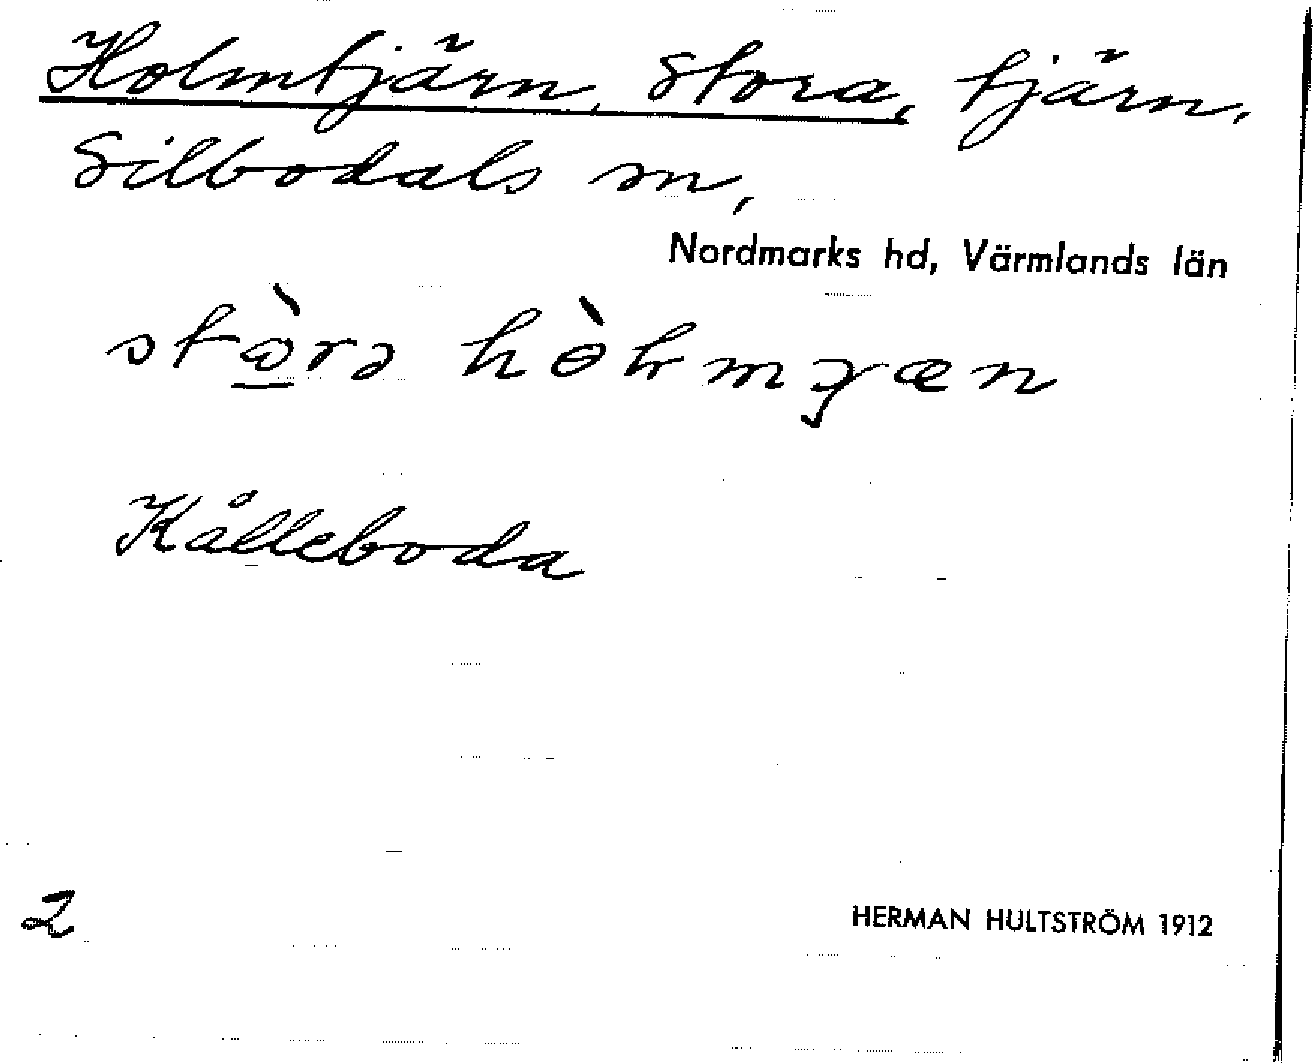 Holmtjärn, Stora, tjärn,
Silbodals sn,
Nordmarks hd, Värmlands län
Kålleboda
2
HERMAN HULTSTRÖM 1912